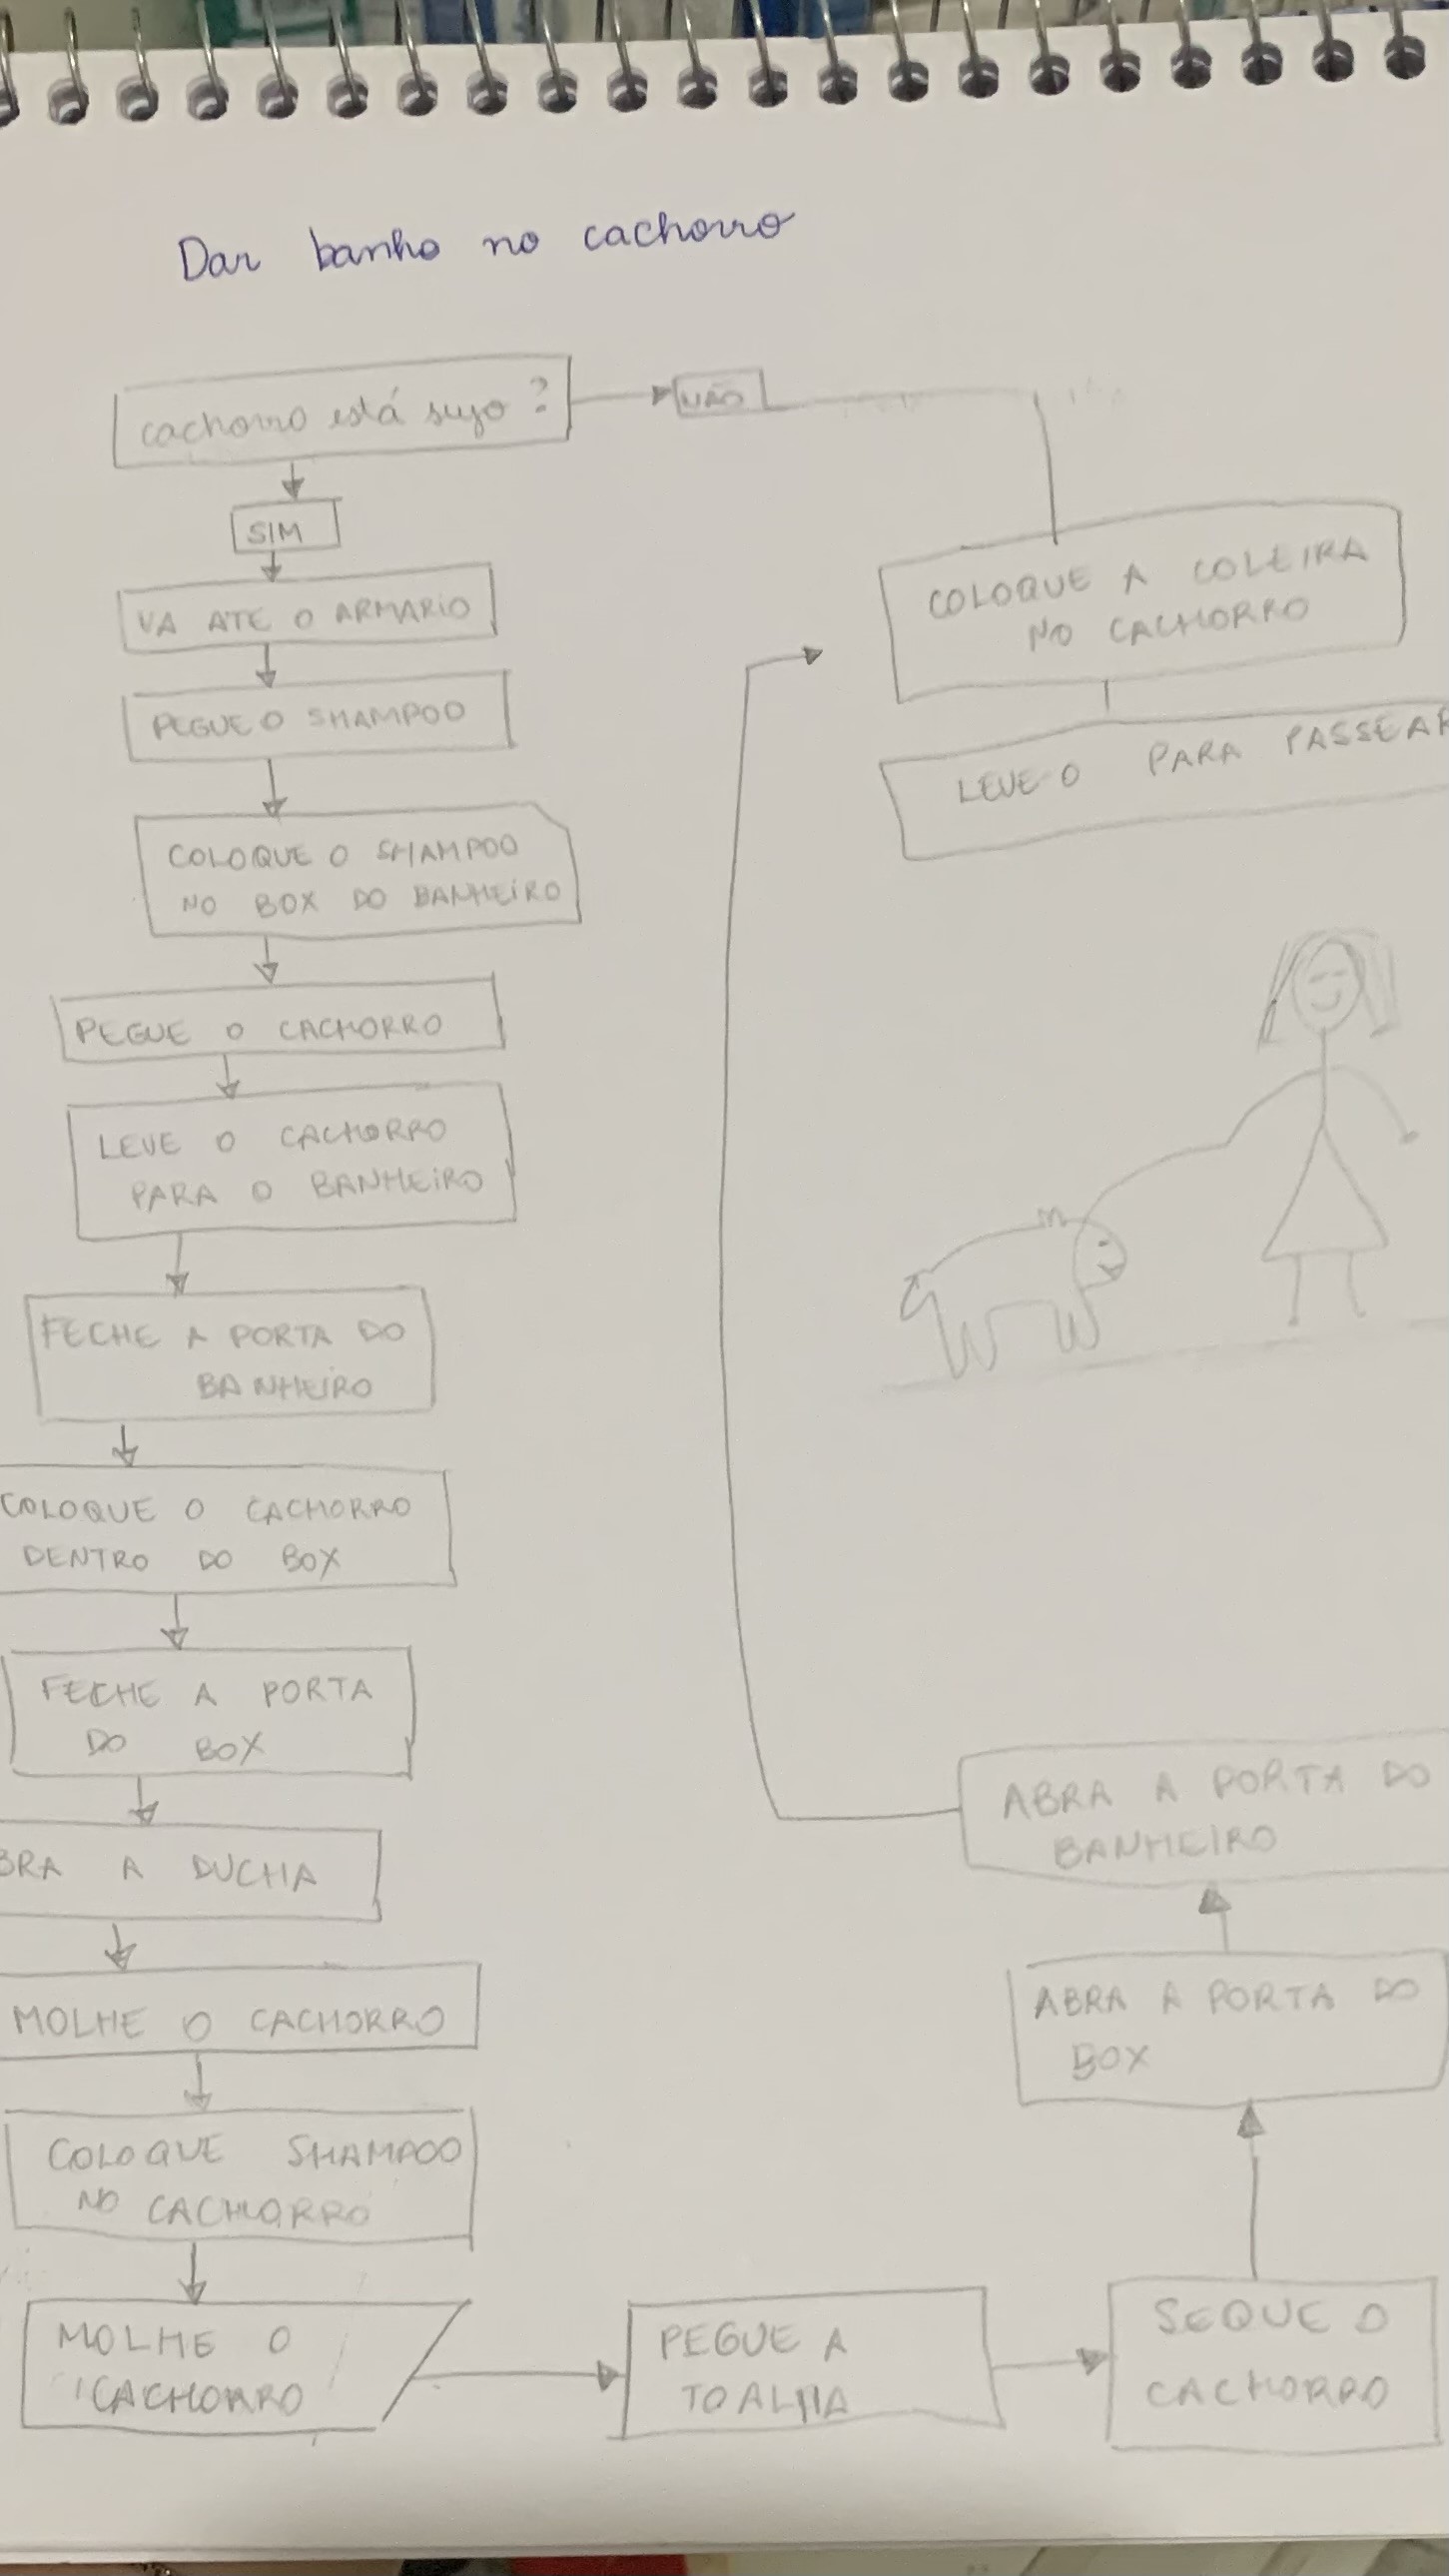 Dar banho no cachorro
cachorro está sujo?
NÃO
SIM
VA ATE O ARMARIO
PEGUE O SHAMPOO
COLOQUE O SHAMPOO
NO BOX DO BANHEIRO
PEGUE O CACHORRO
LEVE O CACHORRO
PARA O BANHEIRO
FECHE A PORTA DO
BANHEIRO
COLOQUE O CACHORRO
DENTRO DO BOX
FECHE A PORTA
DO BOX
BRA A DUCHA
MOLHE O CACHORRO
COLOQUE SHAMPOO
NO CACHORRO
MOLHE O
CACHORRO
PEGUE A
TOALHA
SEQUE O
CACHORRO
ABRA A PORTA DO
BOX
ABRA A PORTA DO
BANHEIRO
COLOQUE A COLEIRA
NO CACHORRO
LEVE-O PARA PASSEAR